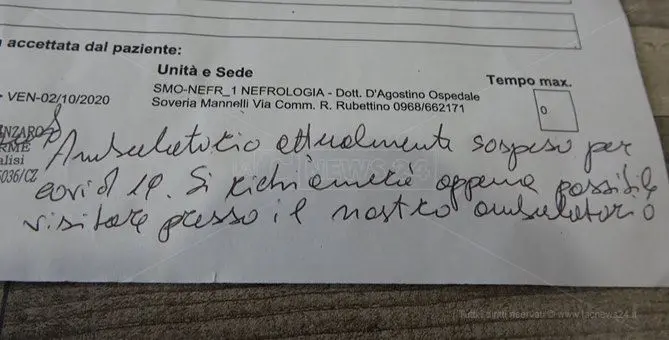 accettata dal paziente:
Unità e Sede
Tempo max.
VEN-02/10/2020
SMO-NEFR_1 NEFROLOGIA - Dott. D'Agostino Ospedale
Soveria Mannelli Via Comm. R. Rubettino 0968/662171
0
NZARO
RME
alisi
5036/CZ
Ambulatorio attualmente sospeso per
covid 19. Si richiamerà appena possibile
visitare presso il nostro ambulatorio
LACNEWS24
Tutti i diritti riservati © www.lacnews24.it